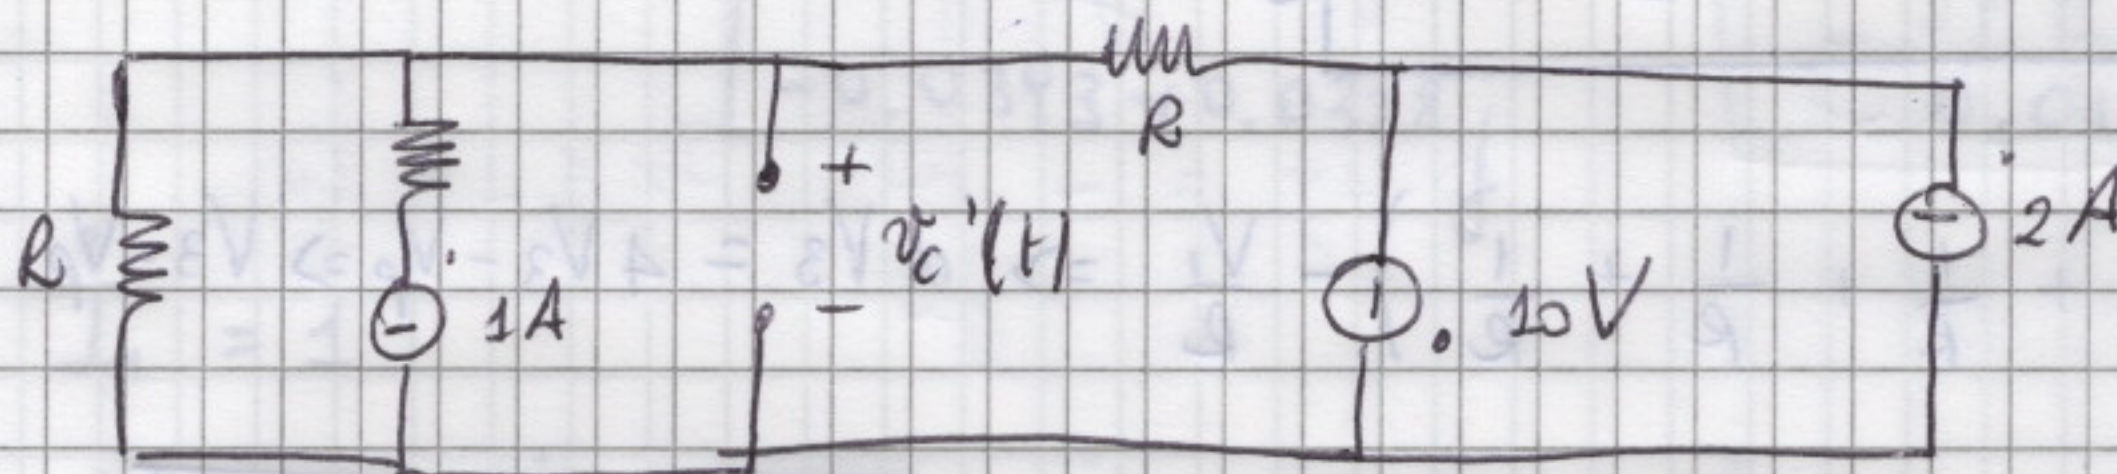 R
1A
+
vc'(t)
-
R
10V
2A